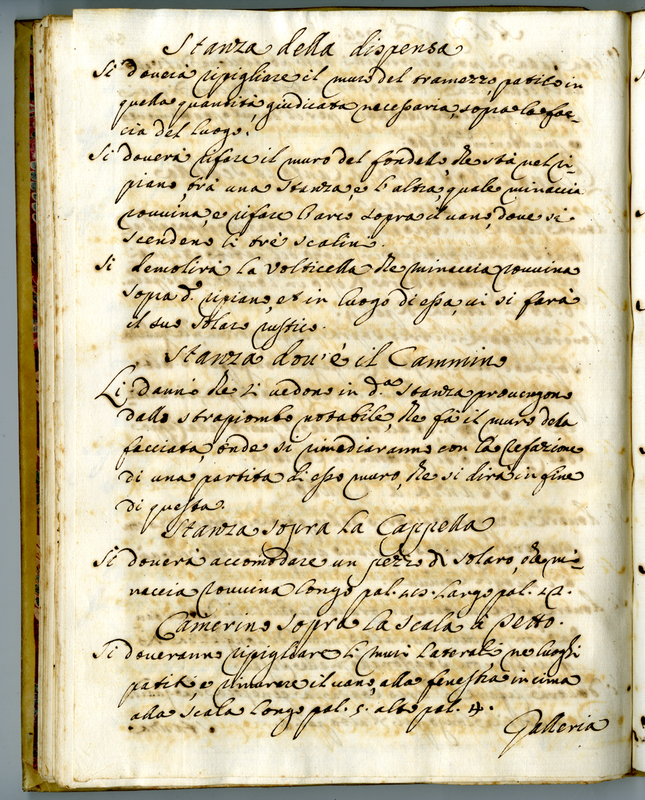 Stanza della dispensa
Si doverà ripigliare il muro del tramezzo, patito in
quella quantità, giudicata necessaria, sopra la fac-
cia del luogo.
Si doverà rifare il muro del fondello, che stà nel ri-
piano, trà una stanza, e l'altra, quale minaccia
rouuina, e rifare l'arco sopra il uano, doue si
scendono li trè scalini.
Si demolirà la volticella che minaccia rouuina
sopra d.º ripiano, et in luogo di essa, ui si farà
il suo solaro rustico.
Stanza dou'è il Cammino
Li danni che si uedono in d.ª Stanza prouengono
dallo strapiombo notabile, che fà il muro della
facciata, onde si rimediaranno con la refazione
di una partita di esso muro, che si dirà in fine
di questa.
Stanza sopra la Cappella
Si doverà accomodare un pezzo di solaro, che mi-
naccia rouuina longo pal. largo pal.
Camerino sopra la scala à petto.
Si doveranno ripigliare li muri laterali ne luoghi
patiti, e rimurare il uano, alla fenestra in cima
alla scala longo pal. 5. alto pal. 4.
Galleria